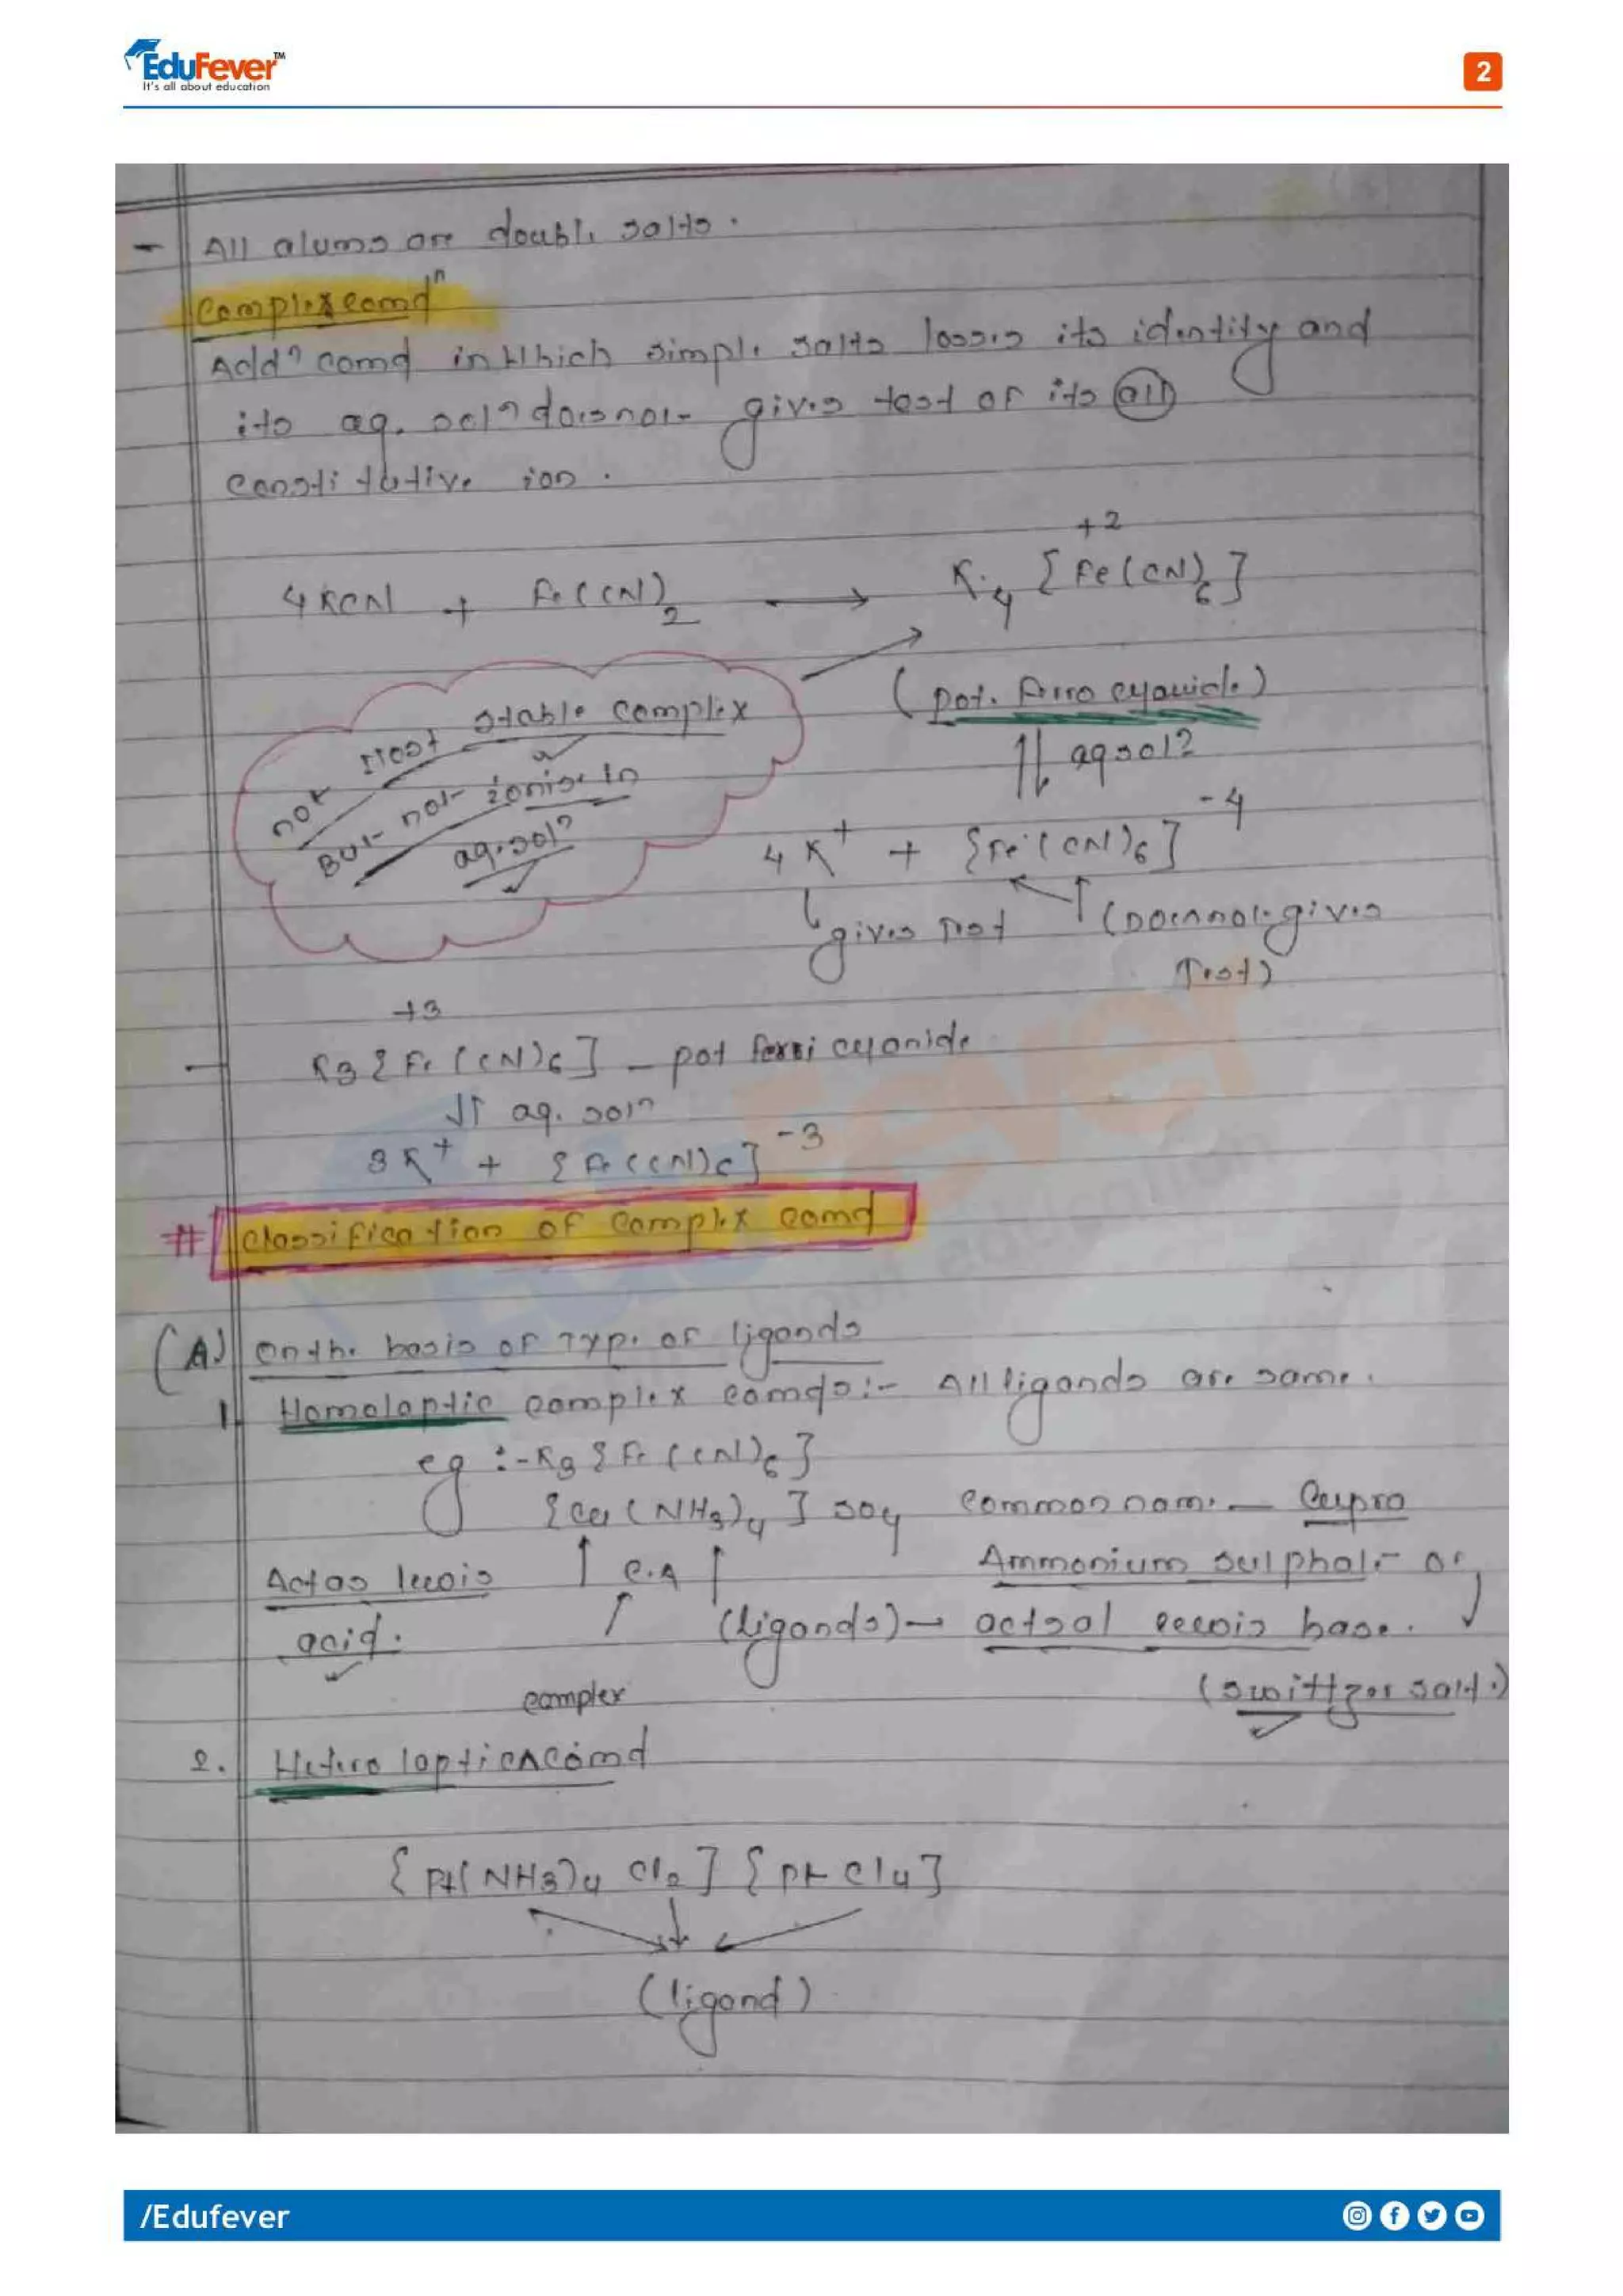 EduFever™
It's all about education
2
- All alums are double salts.
Complex comdn
Addn comd in which simple salts losses its identity and
its aq. soln doesnot gives test of its all
constitutive ion.
+2
4KCN + Fe(CN)2 → K4[Fe(CN)6]
(pot. Ferro cyanide)
not most stable complex
But not ionise in
aq. soln
⇌ aq soln
4K+ + [Fe(CN)6]-4
gives test (Doesnot gives
Test)
+3
- K3[Fe(CN)6] - pot ferri cyanide
⇌ aq. soln
3K+ + [Fe(CN)6]-3
# Classification of complex comd
(A) on the basis of Type of ligands
1. Homolaptic complex comds:- All ligands are same.
eg :- K3[Fe(CN)6]
[Cu(NH3)4]SO4 common name - Cupro
Ammonium sulphate or
Act as lewis acid. C.A (ligands) → act sal lewis base.
(swittzer salt.)
complex
2. Hetero laptic ^ comd
[Pt(NH3)4 Cl2] [Pt Cl4]
(ligand)
/Edufever